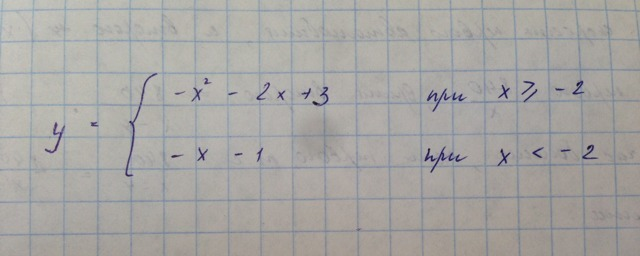 y = { -x² - 2x + 3 при x ≥ -2
-x - 1 при x < -2